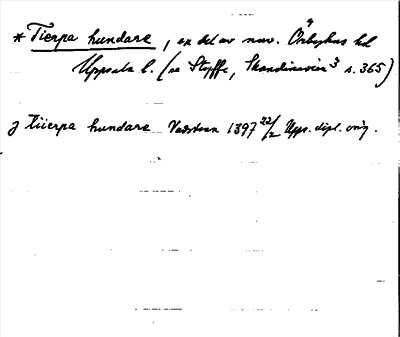 * Tierpa hundare, en del av nuv. Örbyhus hd
Uppsala l. (se Styffe, Skandinavien³ s. 365)
J Tiierpa hundare Vadstena 1397 22/2 Upps. dipl. orig.